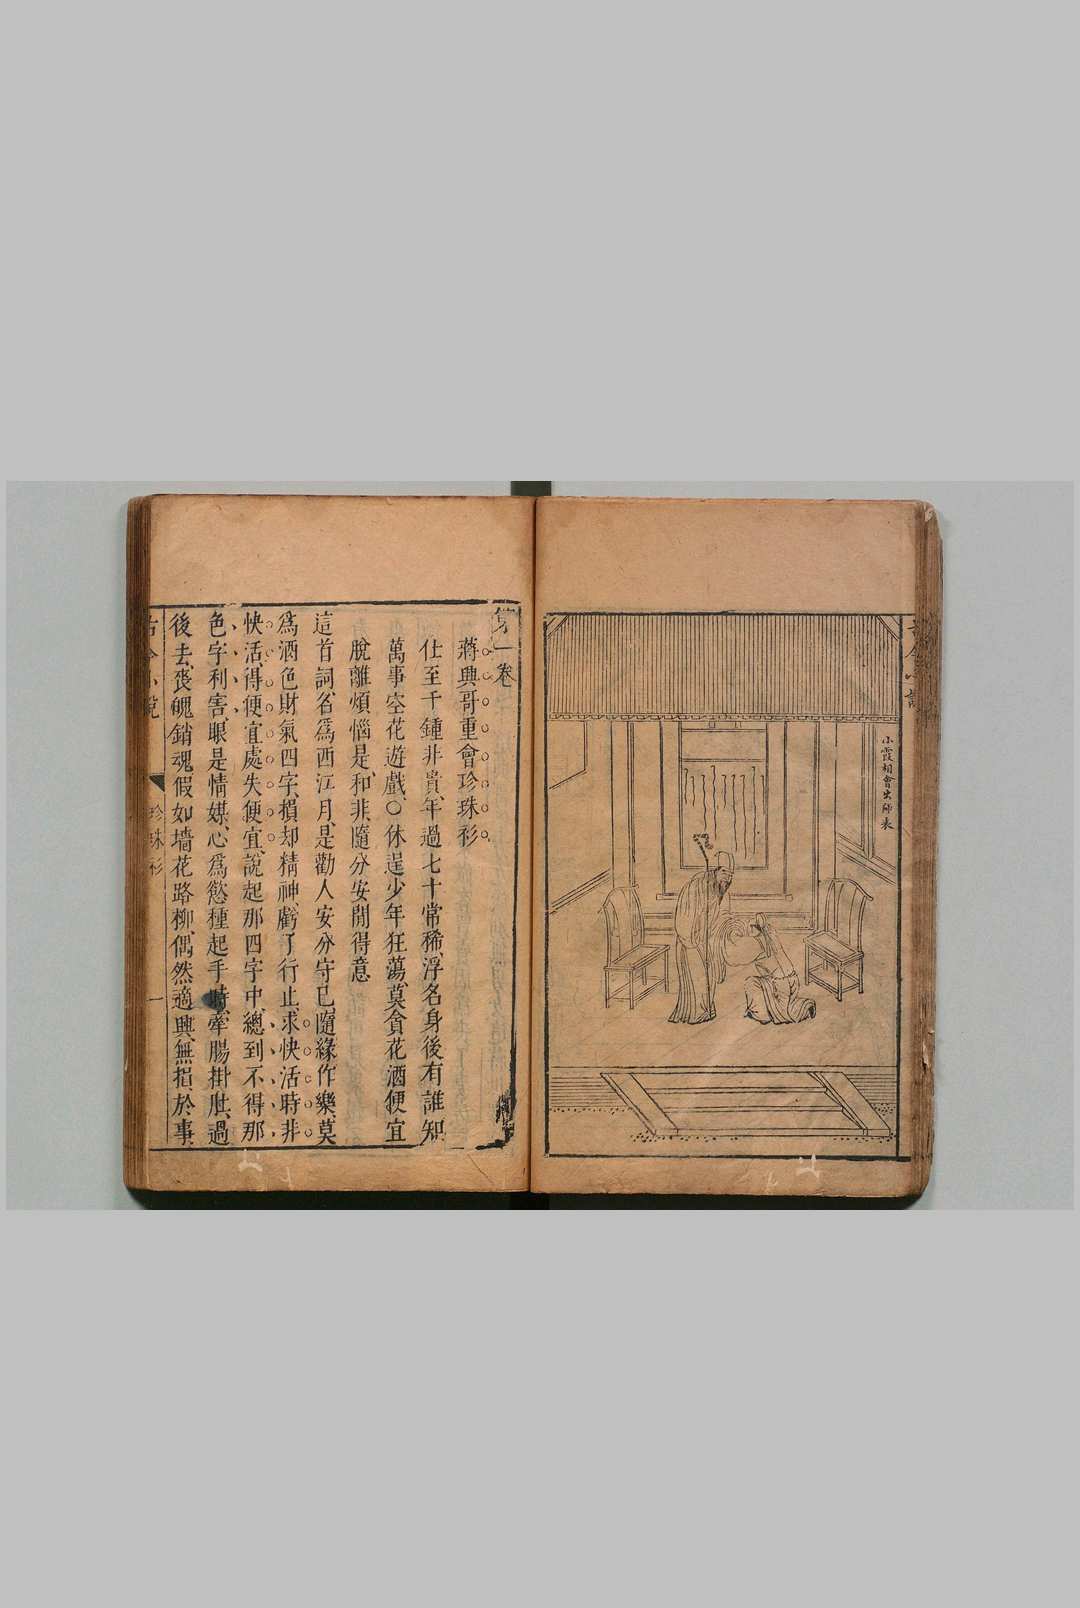 古今小說
小霞相會出師表
第一卷
蔣興哥重會珍珠衫
仕至千鍾非貴、年過七十常稀、浮名身後有誰知、
萬事空花遊戲、○休逞少年狂蕩、莫貪花酒便宜
脫離煩惱是和非、隨分安閒得意
這首詞、名爲西江月、是勸人安分守已、隨緣作樂、莫
爲酒色財氣四字、損却精神、虧了行止、求快活時非
快活、得便宜處失便宜、說起那四字中、總到不得那
色字利害、眼是情媒、心爲慾種、起手時、牽腸掛肚、過
後去、喪魄銷魂、假如墻花路柳、偶然適興、無損於事、
古今小說
珍珠衫
一